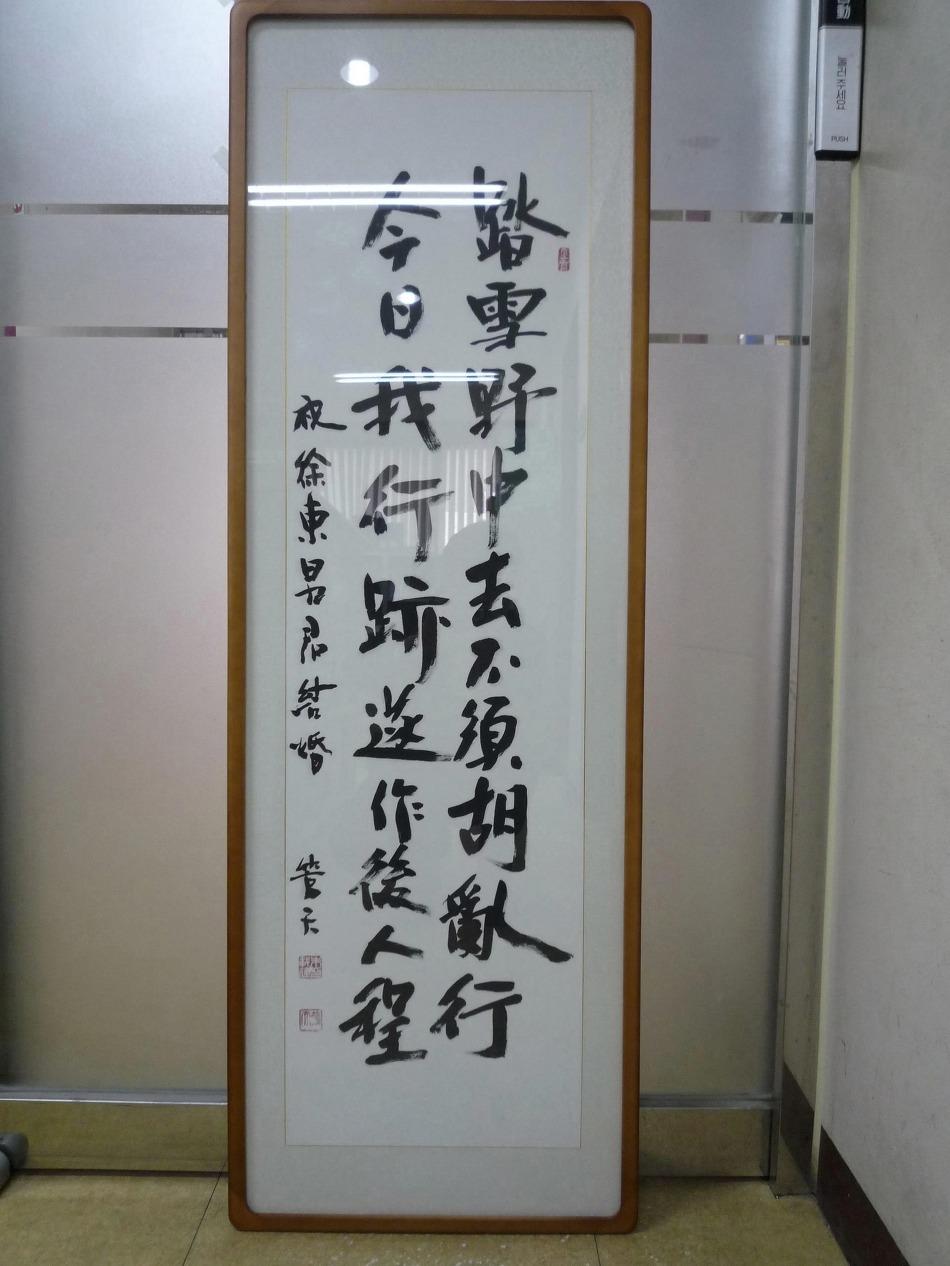 踏雪野中去不須胡亂行
今日我行跡遂作後人程
祝徐東昌君結婚
動
눌러주세요
PUSH